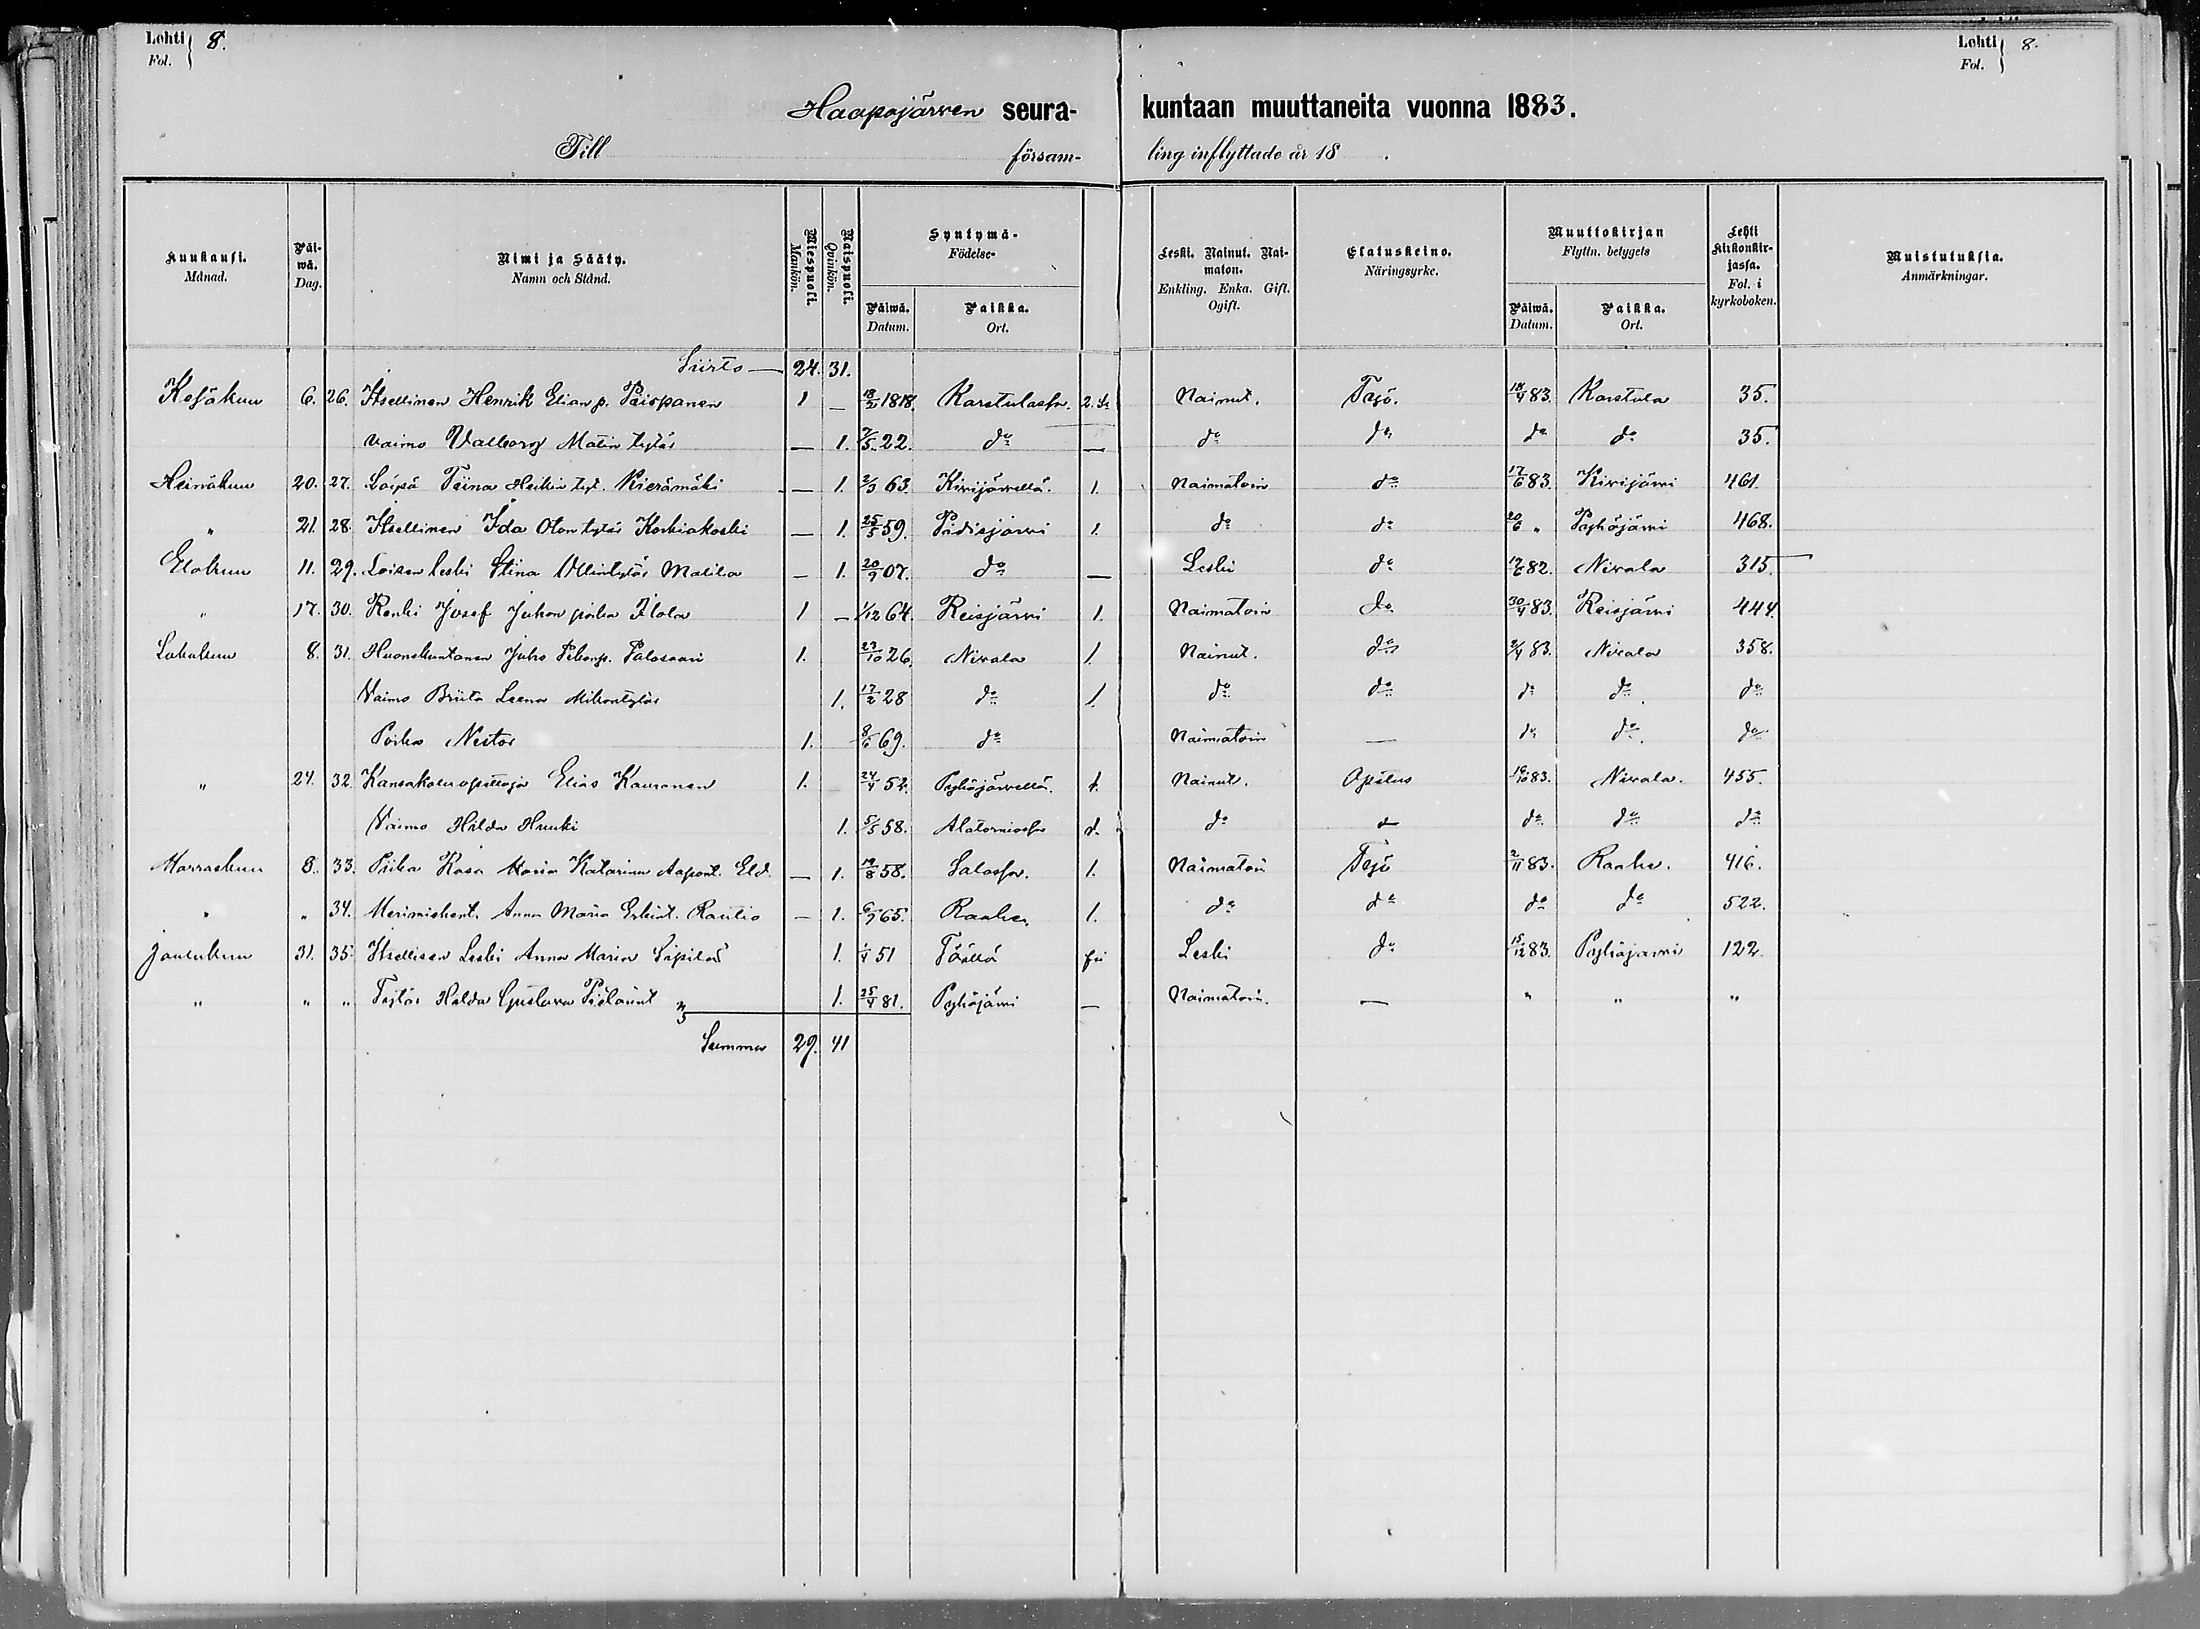 Lehti Fol. 8. Lehti Fol. 8.
Haapajärven seura- kuntaan muuttaneita vuonna 1883.
Till försam- ling inflyttade år 18 .
Kuukausi. Månad. Päi-wä. Dag. Nimi ja Sääty. Namn och Stånd. Miespuoli. Mankön. Naispuoli. Qvinkön. Syntymä- Födelse- Päiwä. Datum. Paikka. Ort. Leski. Nainut. Nai-maton. Enkling. Enka. Gift. Ogift. Elatuskeino. Näringsyrke. Muuttokirjan Flyttn. betygets Päiwä. Datum. Paikka. Ort. Lehti Kirkonkir-jassa. Fol. i kyrkoboken. Muistutuksia. Anmärkningar.
Siirto — 24. 31.
Kesäkuu 6. 26. Itsellinen Henrik Elian p. Piispanen 1 — 18/2 1818. Karstulassa. Nainut. Työ. 18/4 83. Karstula 35.
Vaimo Valborg Matin tytär — 1. 7/5 22. do — do do do do 35.
Heinäkuu 20. 27. Loipä Tiina Heikin tyt. Kierämäki — 1. 2/3 63. Kivijärvellä. 1. Naimatoin do 17/6 83. Kivijärvi 461.
" 21. 28. Itsellinen Ida Oton tytär Koskiakoski — 1. 25/5 59. Pidisjärvi 1. do do 20/6 " Pyhäjärvi 468.
Elokuu 11. 29. Loisen leski Stina Ollintytär Matila — 1. 20/9 07. do — Leski do 17/6 82. Nivala 315.
" 17. 30. Renki Josef Juhon poika Ilola 1 — 1/12 64. Reisjärvi 1. Naimatoin do 30/4 83. Reisjärvi 444.
Lokakuu 8. 31. Huonekuntanen Juho Pekanp. Palosaari 1. 27/10 26. Nivala 1. Nainut. do 2/4 83. Nivala 358.
Vaimo Briita Leena Mikontytär 1. 17/2 28 do 1. do do do do do
Poika Nestor 1. 8/6 69. do Naimatoin — do do do
" 24. 32. Kansakoulu opettaja Elias Kauranen 1. 24/4 52. Pyhäjärvellä. 1. Nainut. Opetus 16/10 83. Nivala. 455.
Vaimo Hilda Huuki 1. 5/5 58. Alatorniossa do do do do
Marraskuu 8. 33. Piika Kaisa Maria Katarina Aapont. Eld. — 1. 19/8 58. Salossa. 1. Naimatoin Työ 2/11 83. Raahe. 416.
" " 34. Merimiehent. Anna Maria Erkint. Rautio — 1. 6/7 65. Raahe. 1. do do do do 522.
Joulukuu 31. 35. Itsellisen Leski Anna Maria Sipilä 1. 1/4 51 Täällä Leski do 15/12 83. Pyhäjärvi 122.
" " " Tytär Hilda Gustava Pietarint 1. 25/4 81. Pyhäjärvi — Naimatoin. — " " "
Summa 29. 41